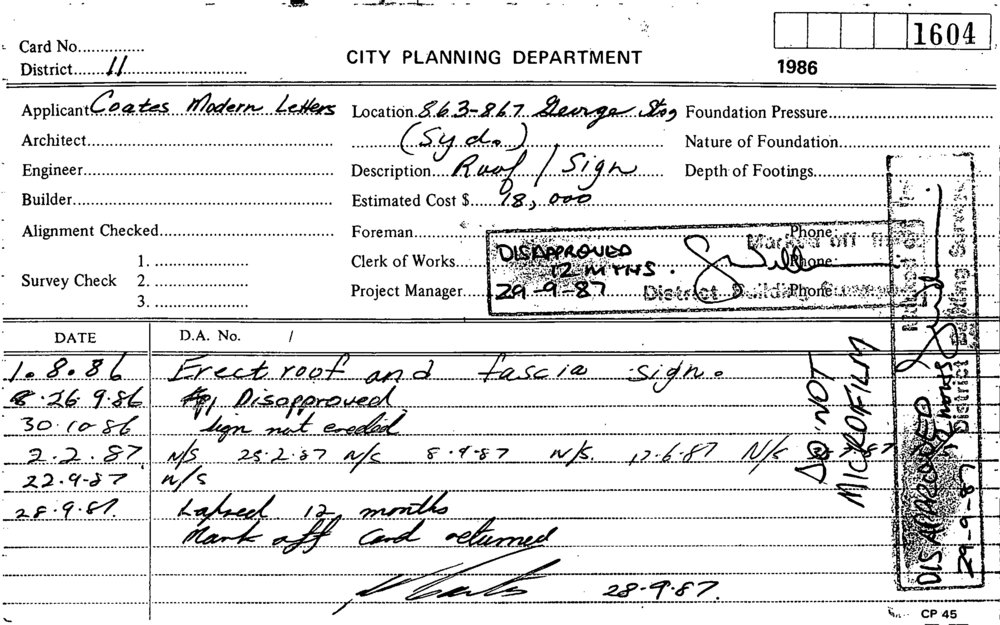 Card No.............. 1604
District......11.......................... CITY PLANNING DEPARTMENT 1986
Applicant Coates Modern Letters Location 863-867 George St, Foundation Pressure
Architect (Syd.) Nature of Foundation
Engineer Description Roof / Sign Depth of Footings
Builder Estimated Cost $ 18,000
Alignment Checked Foreman Phone
Survey Check 1. Clerk of Works Phone
2. Project Manager Phone
3.
DISAPPROVED
12 MTHS.
29-9-87
Marked off
District Building Surveyor
DATE D.A. No. /
1.8.86 Erect roof and fascia sign.
26.9.86 Disapproved
30.10.86 Sign not erected
2.2.87 N/S 25.2.87 N/S 8.4.87 N/S. 17.6.87 N/S
22.9.87 N/S
28.9.87. Lapsed 12 months
Mark off Card returned
28.9.87.
DO NOT
MICROFILM
DISAPPROVED
29-9-87
District Building Surveyor
CP 45